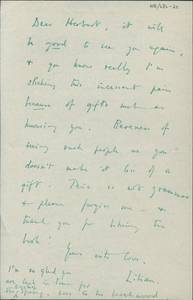 Dear Herbert, it will
be good to see you again,
& you know really I'm
this incessant pain
because of gifts such as
knowing you. Rareness of
seeing such people as you
doesn't make it less of a
gift. This is not grammar
& please forgive me &
thank you for liking the
book!
Yours with love,
Lilian.
I'm so glad you
are back to